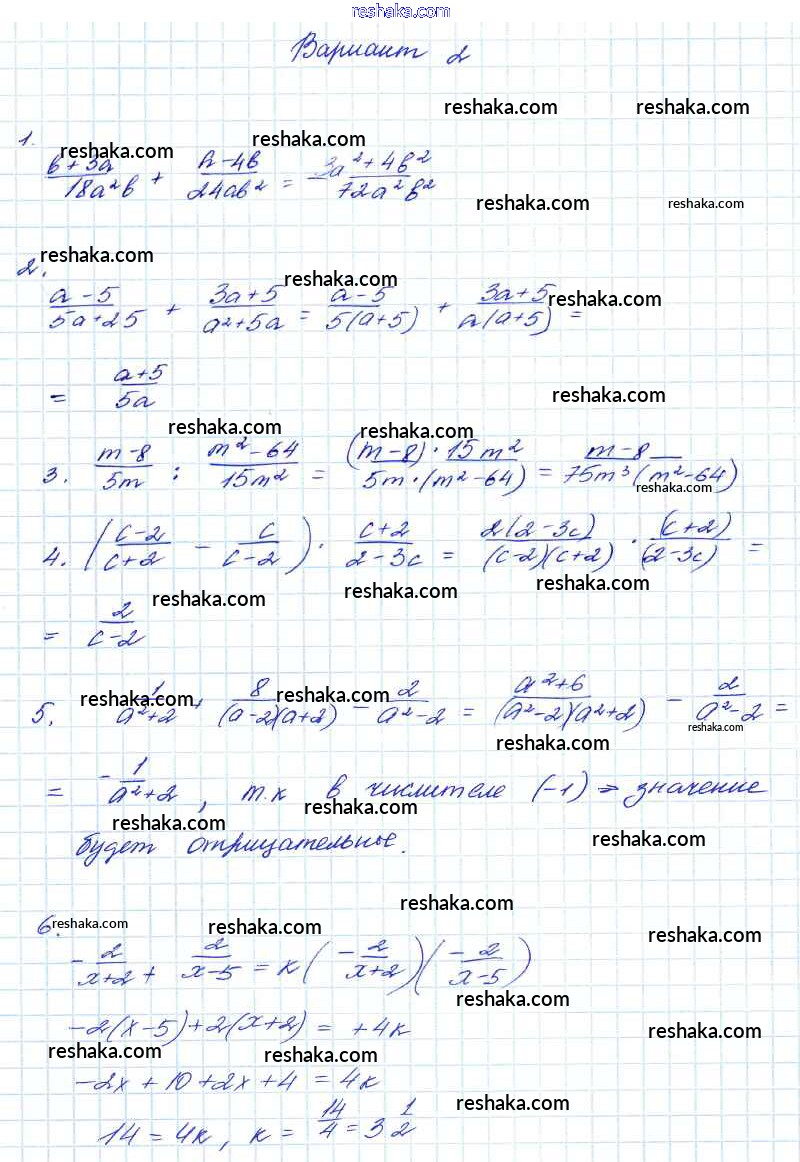 reshaka.com
Вариант 2
reshaka.com reshaka.com
1. reshaka.com reshaka.com
(b+3a)/(18a²b) + (a-4b)/(24ab²) = (3a²+4b²)/(72a²b²)
reshaka.com reshaka.com
2. reshaka.com reshaka.com reshaka.com
(a-5)/(5a+25) + (3a+5)/(a²+5a) = (a-5)/(5(a+5)) + (3a+5)/(a(a+5)) =
= (a+5)/(5a)
reshaka.com
reshaka.com reshaka.com
3. (m-8)/(5m) : (m²-64)/(15m²) = ((m-8)·15m²)/(5m·(m²-64)) = (m-8)/(75m³(m²-64))
reshaka.com
4. ((c-2)/(c+2) - c/(c-2)) · (c+2)/(2-3c) = (2(2-3c))/((c-2)(c+2)) · (c+2)/(2-3c) =
reshaka.com reshaka.com reshaka.com
= 2/(c-2)
reshaka.com reshaka.com
5. 1/(a²+2) + 8/((a-2)(a+2)) - 2/(a²-2) = (a²+6)/((a²-2)(a²+2)) - 2/(a²-2) =
reshaka.com reshaka.com
= -1/(a²+2), т.к в числителе (-1) ⇒ значение
reshaka.com reshaka.com
будет отрицательные.
reshaka.com
reshaka.com
6. reshaka.com reshaka.com reshaka.com
-2/(x+2) + 2/(x-5) = k(-2/(x+2))(-2/(x-5))
reshaka.com
-2(x-5)+2(x+2) = +4k
reshaka.com
reshaka.com reshaka.com
-2x+10+2x+4 = 4k
reshaka.com
14 = 4k, k = 14/4 = 3 1/2